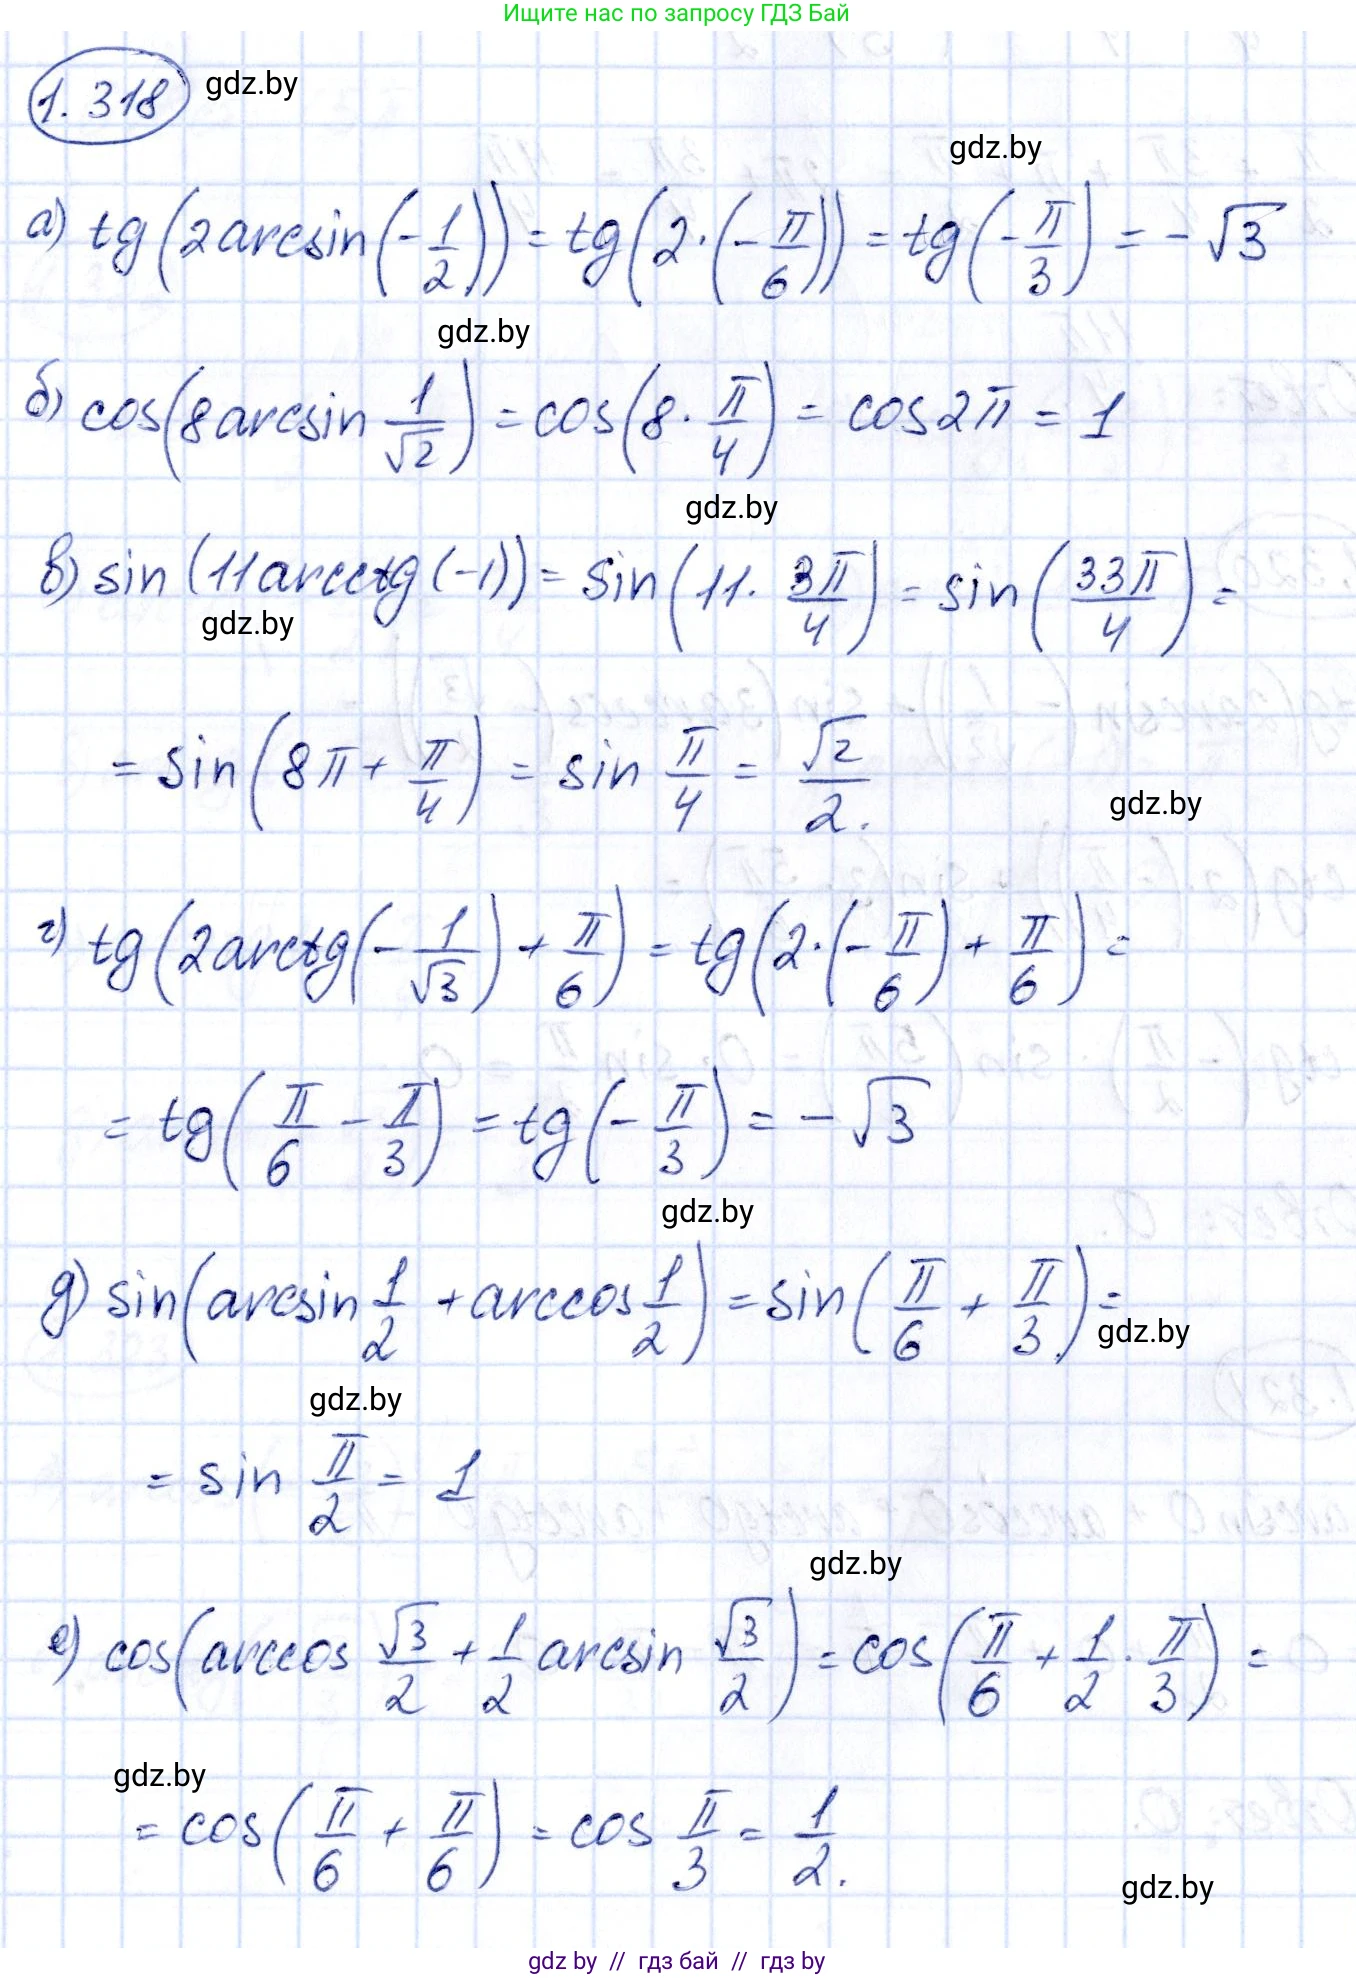 Ищите нас по запросу ГДЗ Бай
1.318 gdz.by
gdz.by
а) tg(2arcsin(-1/2)) = tg(2·(-π/6)) = tg(-π/3) = -√3
gdz.by
б) cos(8arcsin 1/√2) = cos(8·π/4) = cos2π = 1
gdz.by
в) sin(11arcctg(-1)) = sin(11·3π/4) = sin(33π/4) =
gdz.by
= sin(8π + π/4) = sin π/4 = √2/2.
gdz.by
г) tg(2arctg(-1/√3) + π/6) = tg(2·(-π/6) + π/6) =
= tg(π/6 - π/3) = tg(-π/3) = -√3
gdz.by
д) sin(arcsin 1/2 + arccos 1/2) = sin(π/6 + π/3) =
gdz.by
gdz.by
= sin π/2 = 1
gdz.by
е) cos(arccos √3/2 + 1/2 arcsin √3/2) = cos(π/6 + 1/2·π/3) =
gdz.by
= cos(π/6 + π/6) = cos π/3 = 1/2.
gdz.by
gdz by // гдз бай // гдз by